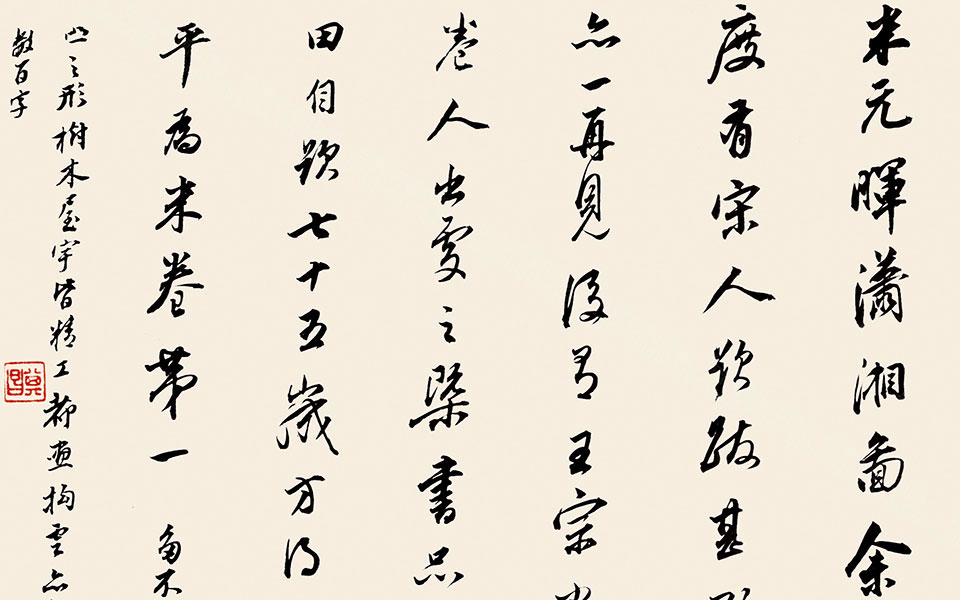 米元暉瀟湘圖余
度有宋人題跋甚
亦一再見後有王宗
卷人出處之槩書品
田自題七十五歲方得
平為米卷第一
之形樹木屋宇皆精工都畫雲亦
數百字